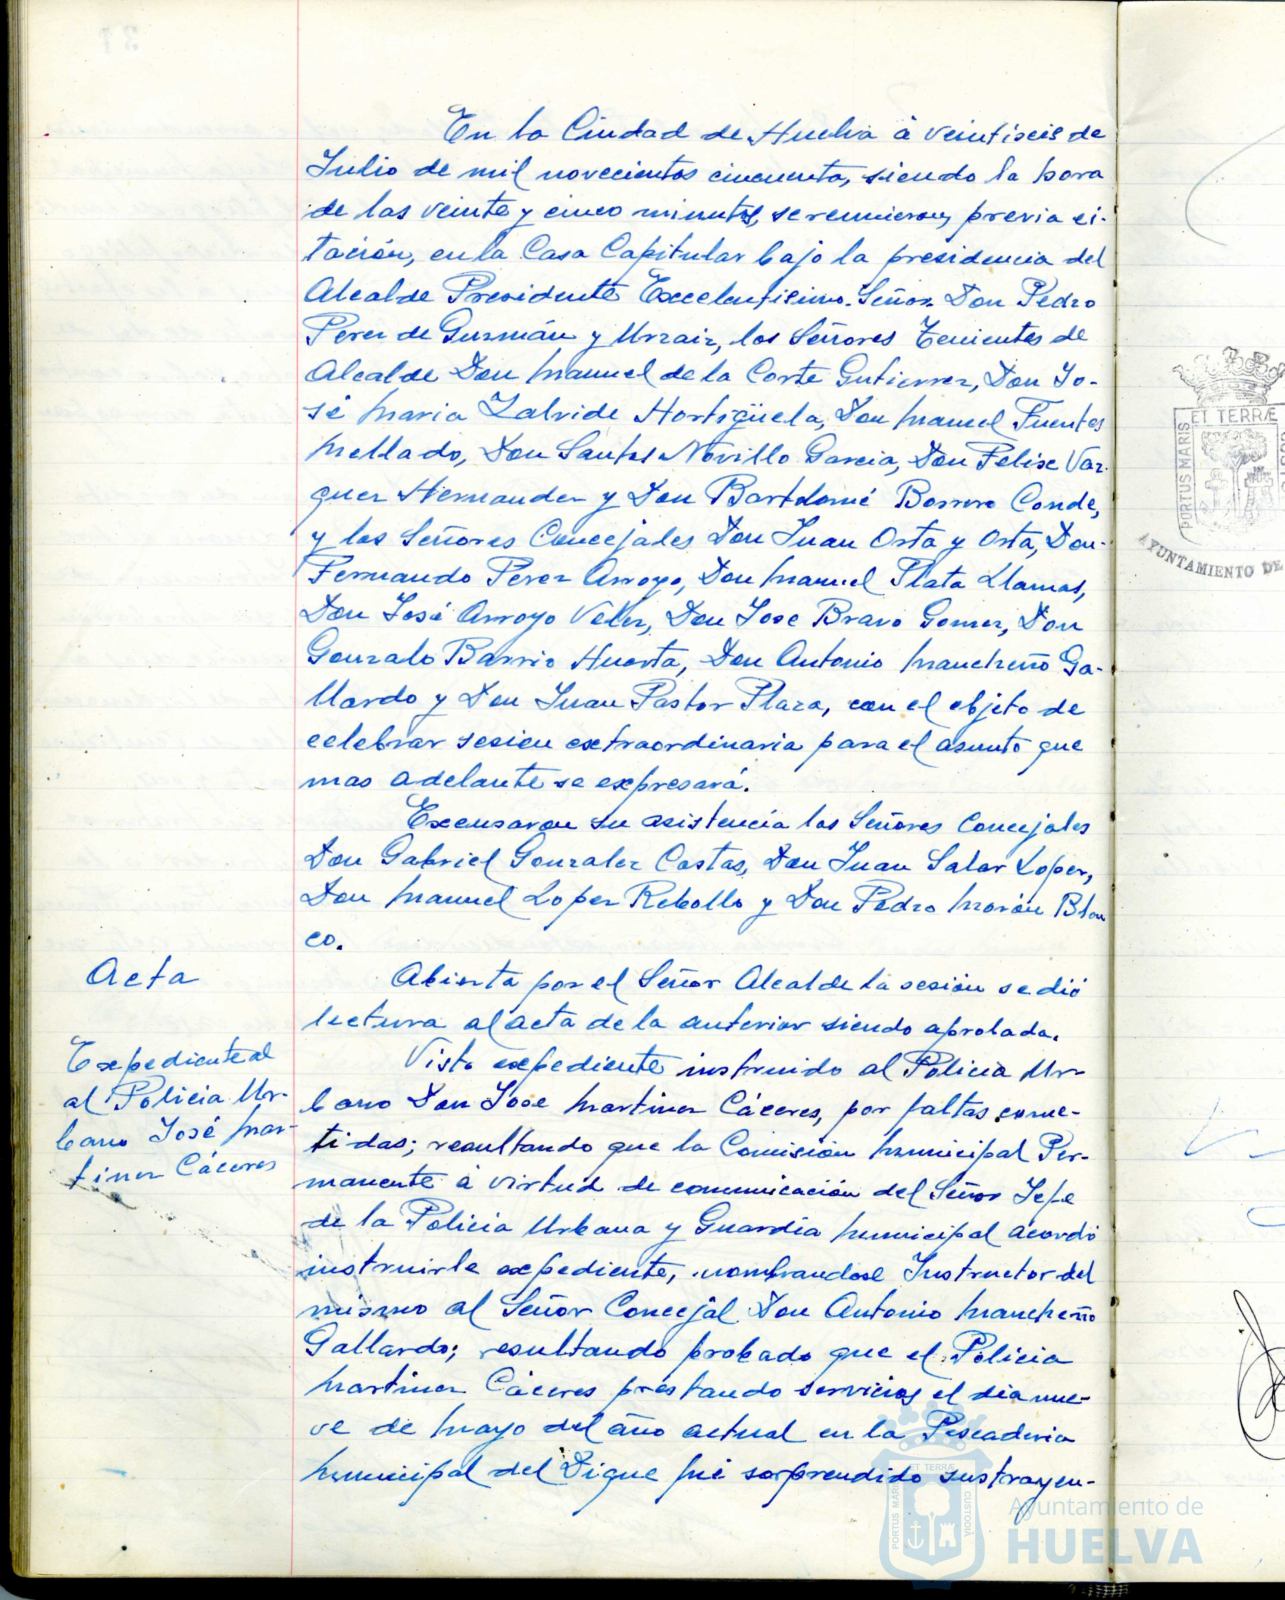 En la Ciudad de Huelva á veintiseis de
Julio de mil novecientos cincuenta, siendo la hora
de las veinte y cinco minutos, se reunieron, previa ci-
tación, en la Casa Capitular bajo la presidencia del
Alcalde Presidente Excelentisimo Señor Don Pedro
Perez de Guzmán y Urzaiz, los Señores Tenientes de
Alcalde Don Manuel de la Corte Gutierrez, Don Jo-
sé Maria Zalvide Hortigüela, Don Manuel Fuentes
Mellado, Don Santos Novillo Garcia, Don Felix Vaz-
quez Hernandez y Don Bartolomé Borrero Conde,
y los Señores Concejales Don Juan Orta y Orta, Don
Fernando Perez Arroyo, Don Manuel Plata Llamas,
Don José Arroyo Velez, Don Jose Bravo Gomez, Don
Gonzalo Barrio Huerta, Don Antonio Mancheño Ga-
llardo y Don Juan Pastor Plaza, con el objeto de
celebrar sesion extraordinaria para el asunto que
mas adelante se expresará.
Excusaron su asistencia los Señores Concejales
Don Gabriel Gonzalez Costas, Don Juan Salar Lopez,
Don Manuel Lopez Rebollo y Don Pedro Morón Blan
co.
Acta
Abierta por el Señor Alcalde la sesión se dió
lectura al acta de la anterior siendo aprobada.
Expediente al
al Policia Ur-
bano José Mar-
tinez Cáceres
Visto expediente instruido al Policia Ur-
bano Don Jose Martinez Cáceres, por faltas come-
tidas; resultando que la Comisión Municipal Per-
manente á virtud de comunicación del Señor Jefe
de la Policia Urbana y Guardia Municipal acordó
instruirle expediente, nombrandose Instructor del
mismo al Señor Concejal Don Antonio Mancheño
Gallardo; resultando probado que el Policia
Martinez Cáceres prestando servicios el dia nue-
ve de Mayo del año actual en la Pescaderia
Municipal del Dique fué sorprendido sustrayen-
ET TERRÆ
PORTUS MARIS
AYUNTAMIENTO DE
ET TERRÆ
PORTUS MARIS
CUSTODIA
Ayuntamiento de
HUELVA